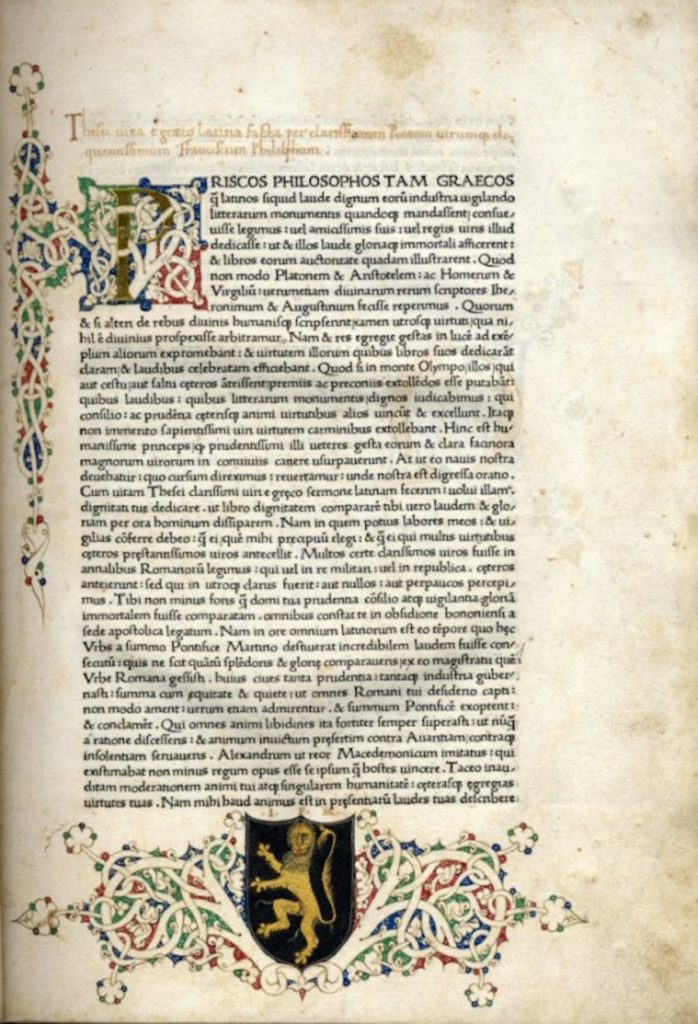 Thesei uita e græco latina facta per clarissimum Poetam uirumq; elo,
quentissimum Franciscum Philelphum.
PRISCOS PHILOSOPHOS TAM GRAECOS
q̃ latinos siquid laude dignum eorũ industria uigilando
litterarum monumentis quandoq; mandassent; consue,
uisse legimus: uel amicissimis suis: uel regiis uiris illud
dedicasse: ut & illos laude gloriaq; immortali afficerent:
& libros eorum auctoritate quadam illustrarent. Quod
non modo Platonem & Aristotelem: ac Homerum &
Virgiliũ: uerumetiam diuinarum rerum scriptores Ihe,
ronimum & Augustinum fecisse reperimus. Quorum
& si alteri de rebus diuinis humanisq; scripserint; tamen utrosq; uirtuti; qua ni,
hil ẽ diuinius prospexisse arbitramur. Nam & res egregie gestas in lucẽ ad exẽ,
plum aliorum expromebant: & uirtutem illorum quibus libros suos dedicarãt
claram; & laudibus celebratam efficiebant. Quod si in monte Olympo; illos; qui
aut cestu; aut saltu cęteros ãteissent; premiis ac preconiis extollẽdos esse putabãt:
quibus laudibus: quibus litterarum monumentis; dignos iudicabimus: qui
consilio: ac prudẽtia cęterisq; animi uirtutibus alios uincũt & excellunt. Itaq;
non immerito sapientissimi uiri uirtutem carminibus extollebant. Hinc est hu,
manissime princeps; q; prudentissimi illi ueteres gesta eorum & clara facinora
magnorum uirorum in conuiuiis canere usurpauerunt. At ut eo nauis nostra
deuehatur: quo cursum direximus: reuertamur: unde nostra est digressa oratio.
Cum uitam Thesei clarissimi uiri e gręco sermone latinam fecerim: uolui illam.
dignitati tuę dedicare. ut libro dignitatem compararẽ tibi uero laudem & glo,
riam per ora hominum dissiparem. Nam in quem potius labores meos: & ui,
gilias cõferre debeo: q̃ ei; quẽ mihi precipuũ elegi: & q̃ ei qui multis uirtutibus
cęteros pręstantissimos uiros antecellit. Multos certe clarissimos uiros fuisse in
annalibus Romanorũ legimus: qui uel in re militari: uel in republica. cęteros
anteierunt: sed qui in utroq; clarus fuerit: aut nullos: aut perpaucos percepi,
mus. Tibi non minus foris q̃ domi tua prudentia cõsilio atq; uigilantia gloriã
immortalem fuisse comparatam. omnibus constat te in obsidione bononiensi a
sede apostolica legatum. Nam in ore omnium latinorum est eo tẽpore quo hęc
Vrbs a summo Pontifice Martino desciuerat incredibilem laudem fuisse con,
secutũ: quis ne scit quãtũ splẽdoris & glorię comparaueris; ex eo magistratu quẽ
Vrbe Romana gessisti. huius ciues tanta prudentia: tantaq; industria guber,
nasti: summa cum ęquitate & quiete: ut omnes Romani tui desiderio capti:
non modo ament: uerum etiam admirentur. & summum Pontificẽ exoptent:
& conclamẽt. Qui omnes animi libidines ita fortiter semper superasti: ut nũq̃
a ratione discesseris: & animum inuictum pręsertim contra Auaritiam; contraq;
insolentiam seruaueris. Alexandrum ut reor Macedemonicum imitatus: qui
existimabat non minus regum opus esse se ipsum q̃ hostes uincere. Taceo inau,
ditam moderationem animi tui atq; singularem humanitatẽ: cęterasq; ęgregias
uirtutes tuas. Nam mihi haud animus est in pręsentiarũ laudes tuas describere